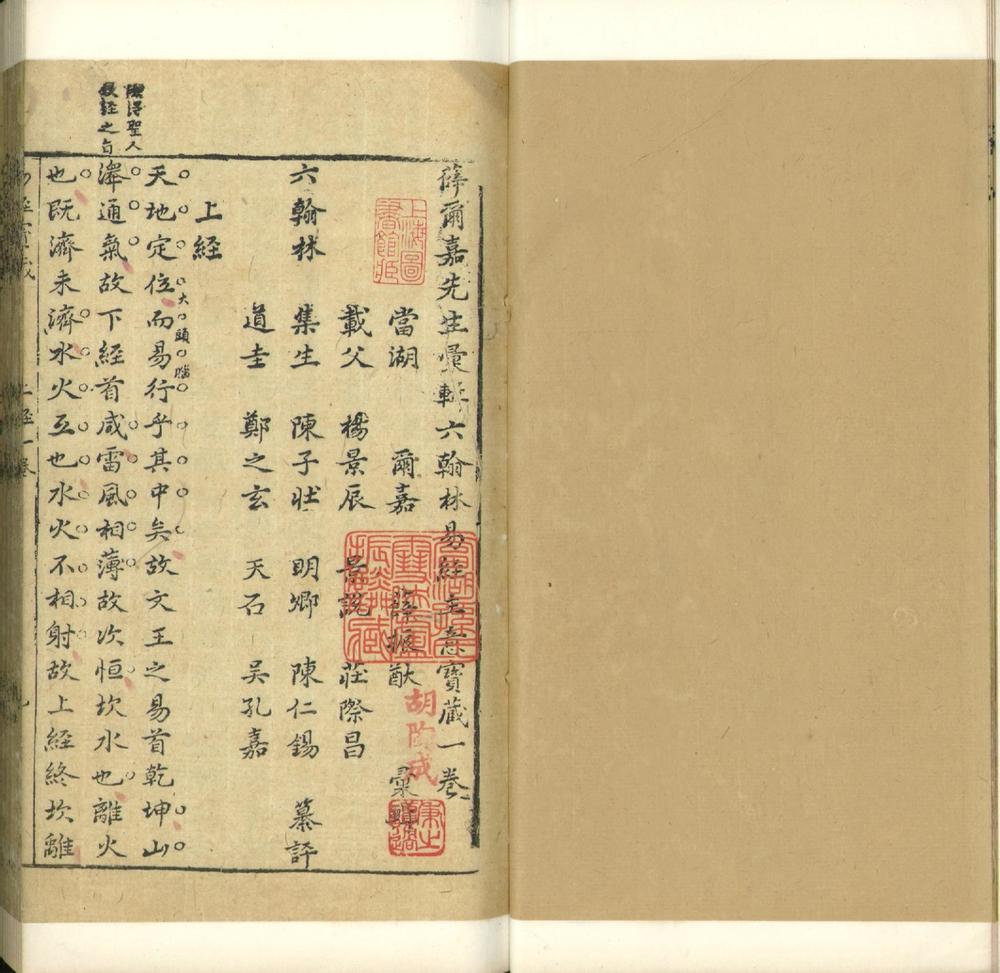 薛爾嘉先生彙輯六翰林易經主意寶藏一卷
當湖 爾嘉 薛振猷 彙
載父 楊景辰 景說 莊際昌
六翰林 集生 陳子壯 明卿 陳仁錫 纂評
道圭 鄭之玄 天石 吴孔嘉
上經
天地定位而易行乎其中矣故文王之易首乾坤山
大頭腦
澤通氣故下經首咸雷風相薄故次恒坎水也離火
也既濟未濟水火互也水火不相射故上經終坎離
得聖人
經之旨
上經一卷
上海圖書館藏
胡